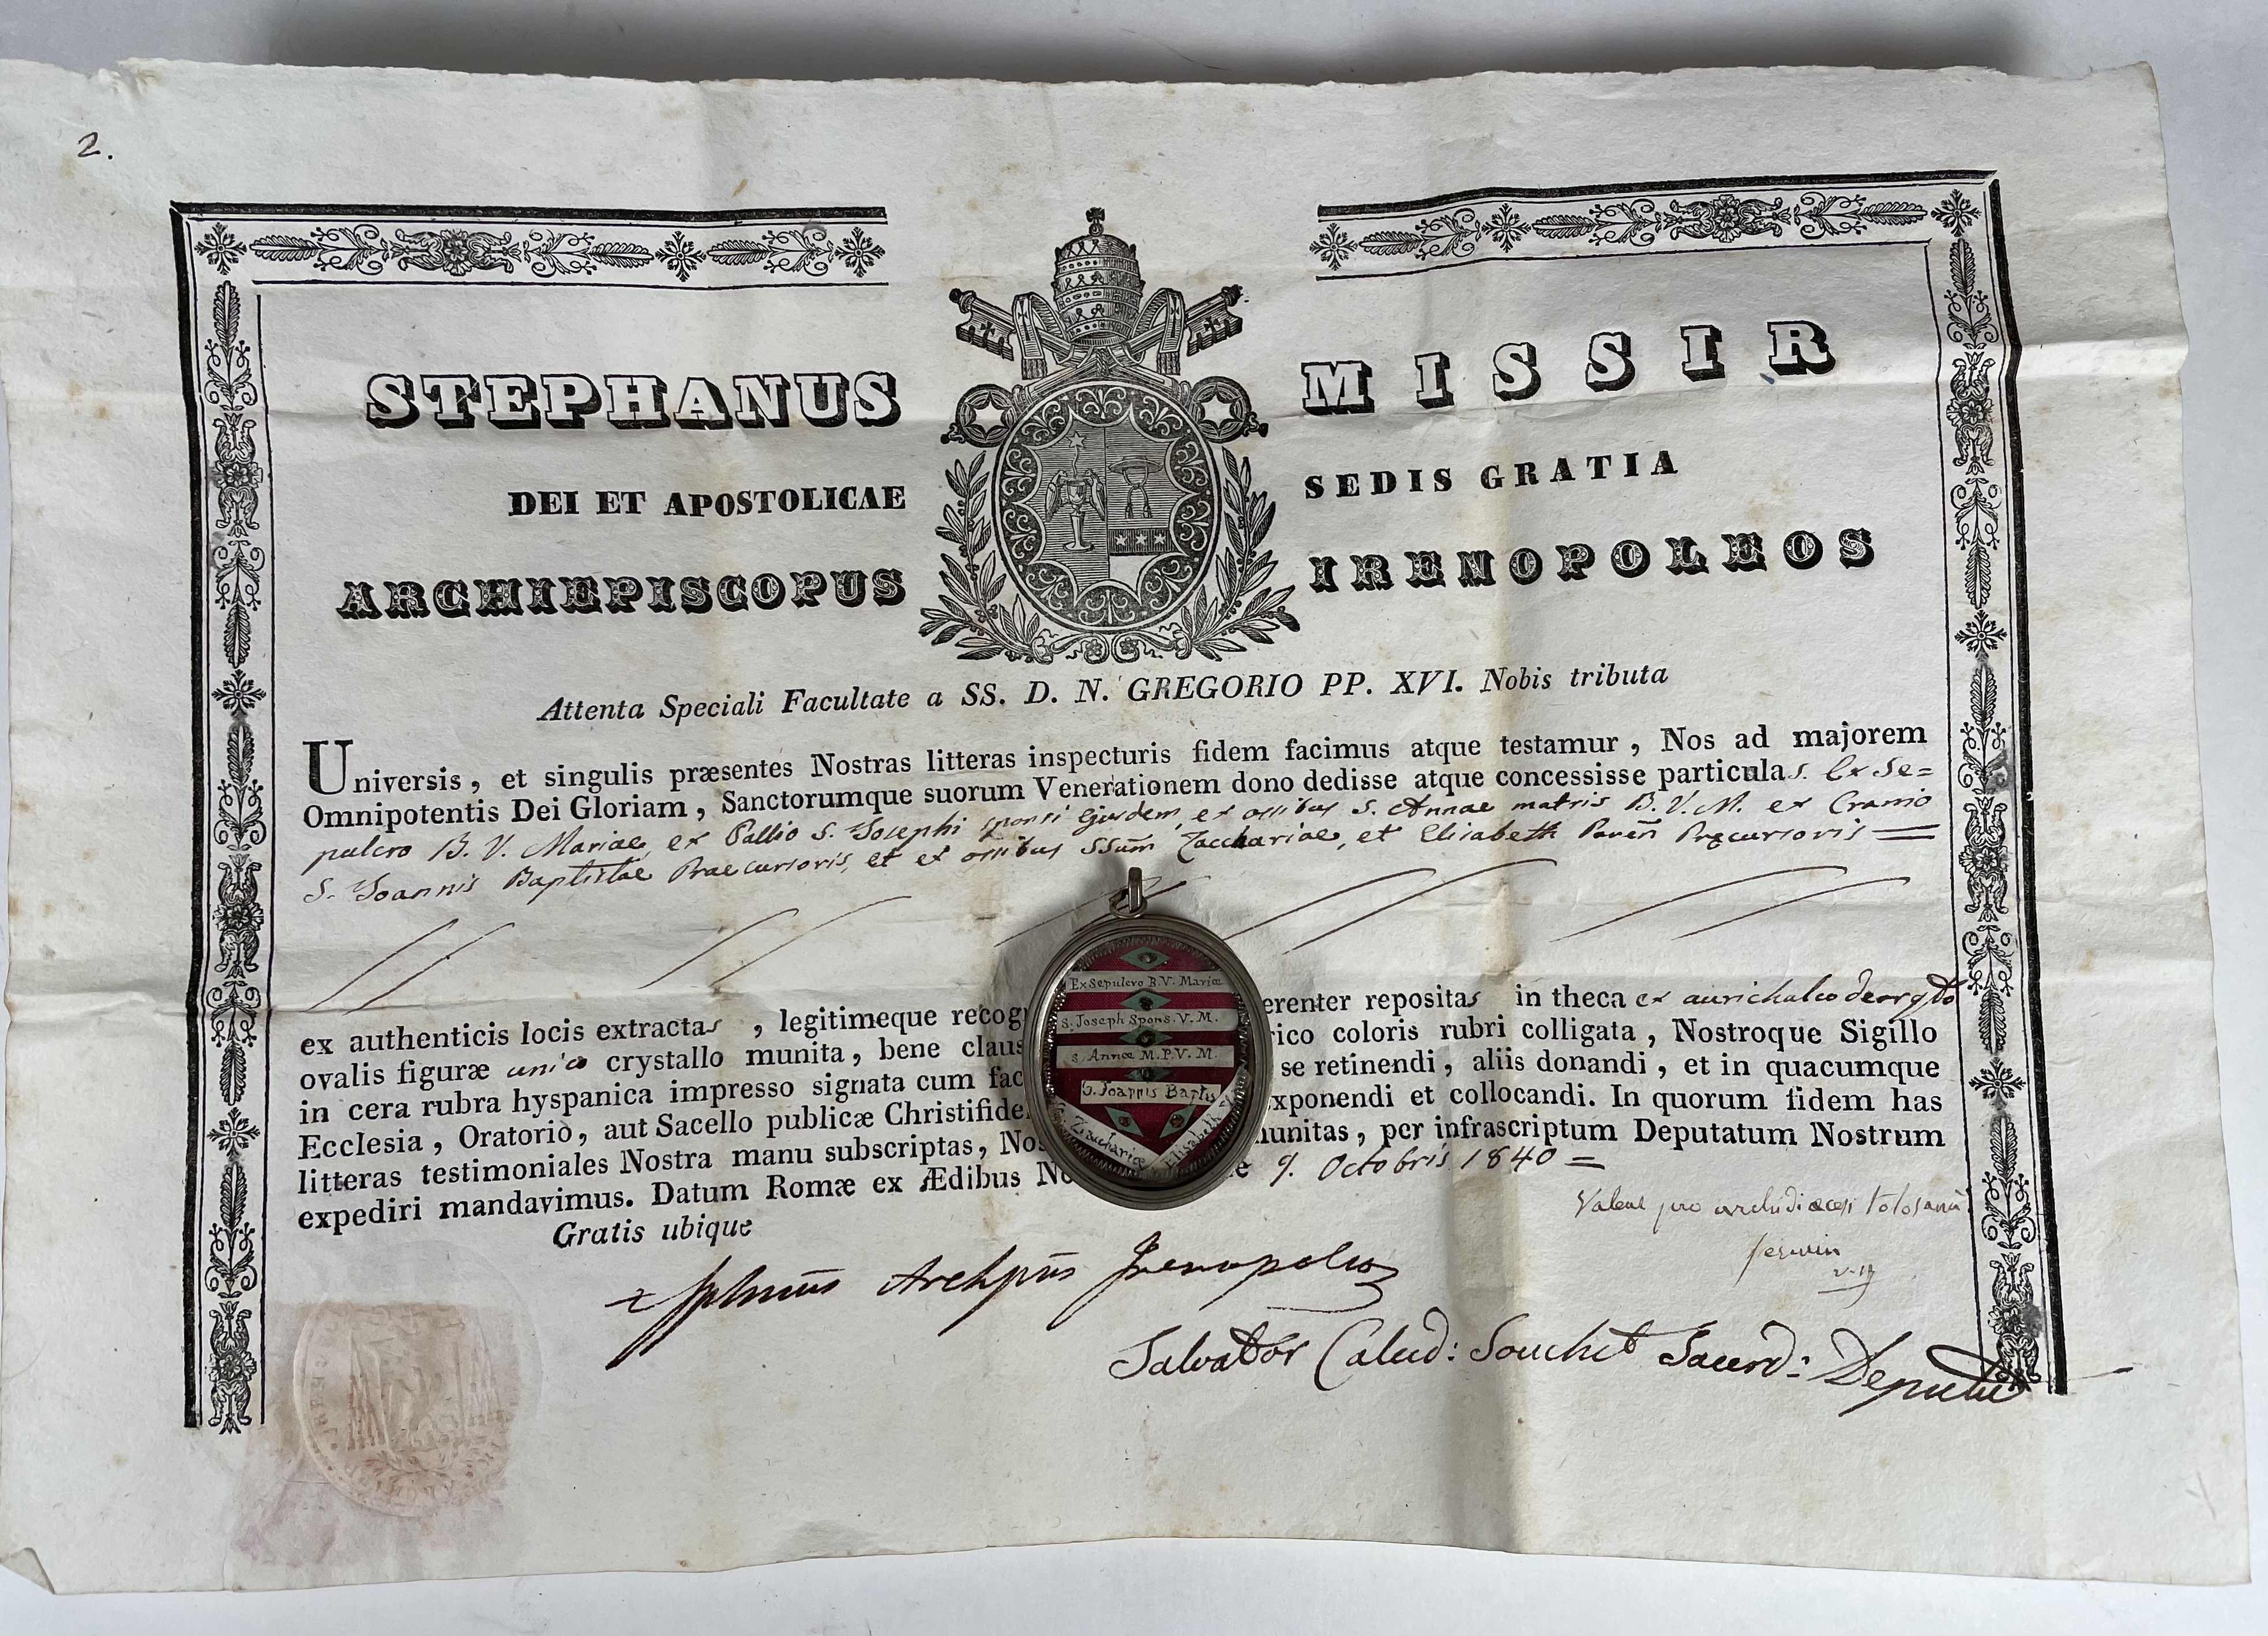 2.
STEPHANUS MISSIR
DEI ET APOSTOLICAE SEDIS GRATIA
ARCHIEPISCOPUS IRENOPOLEOS
Attenta Speciali Facultate a SS. D. N. GREGORIO PP. XVI. Nobis tributa
Universis, et singulis præsentes Nostras litteras inspecturis fidem facimus atque testamur, Nos ad majorem
Omnipotentis Dei Gloriam, Sanctorumque suorum Venerationem dono dedisse atque concessisse particulas. Ex Se=
pulcro B. V. Mariae, ex Pallio S. Josephi sponsi Ejusdem, ex ossibus S. Annae matris B. V. M. ex Cranio
S. Joannis Baptistae Praecursoris, et ex ossibus SSum Zacchariae, et Elisabeth Paren Præcursoris =
ex authenticis locis extractas, legitimeque recog erenter repositas in theca ex aurichalco deargto
ovalis figuræ unico crystallo munita, bene claus rico coloris rubri colligata, Nostroque Sigillo
in cera rubra hyspanica impresso signata cum fac se retinendi, aliis donandi, et in quacumque
Ecclesia, Oratorio, aut Sacello publicæ Christifide xponendi et collocandi. In quorum fidem has
litteras testimoniales Nostra manu subscriptas, Nos munitas, per infrascriptum Deputatum Nostrum
expediri mandavimus. Datum Romæ ex Ædibus No e 9. Octobris 1840 =
Gratis ubique
Valeat pro archidiœcesi tolosana
Archpus Irenopoleos
Salvator Calud: Souchet Sacerd: Deputat
Ex Sepulcro B.V. Mariæ
S. Joseph Spons. V. M.
S. Annæ M.P.V.M.
S. Joannis Baptis
Zacchariæ Elisabeth